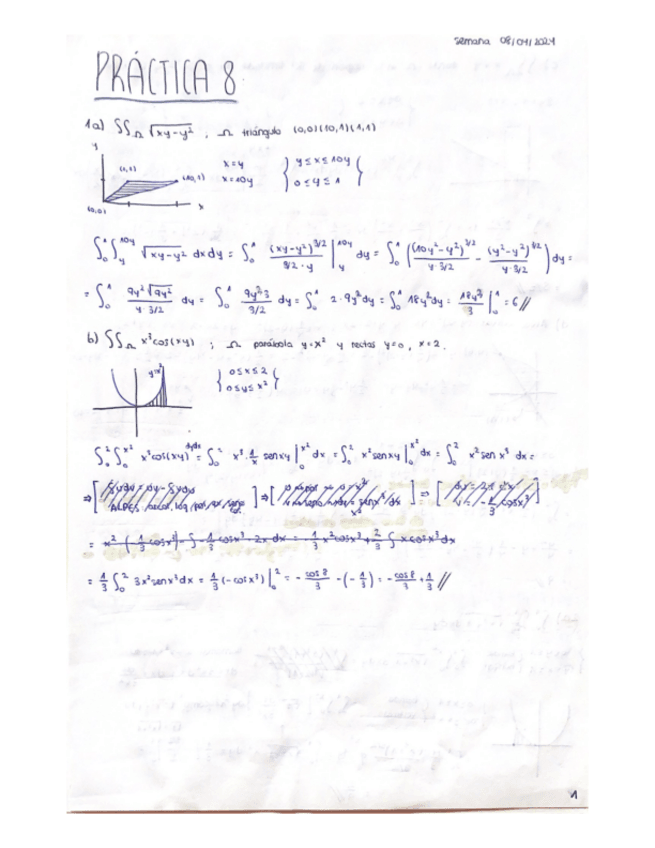 Semana 08/04/2024
PRÁCTICA 8
1a) ∬_Ω √(xy-y²) ; Ω triángulo (0,0)(10,1)(1,1)
y
(1,1)
(10,1)
(0,0)
x
x=y
x=10y
{ y≤x≤10y
0≤y≤1 }
∫₀¹ ∫_y^{10y} √(xy-y²) dxdy = ∫₀¹ (xy-y²)^{3/2} / (3/2·y) |_y^{10y} dy = ∫₀¹ ( (10y²-y²)^{3/2} / (y·3/2) - (y²-y²)^{3/2} / (y·3/2) ) dy =
= ∫₀¹ 9y²√(9y²) / (y·3/2) dy = ∫₀¹ 9y²·3 / (3/2) dy = ∫₀¹ 2·9y²dy = ∫₀¹ 18y²dy = 18y³/3 |₀¹ = 6 //
b) ∬_Ω x³cos(xy) ; Ω parábola y=x² y rectas y=0, x=2.
y=x²
{ 0≤x≤2
0≤y≤x² }
∫₀² ∫₀^{x²} x³cos(xy) dydx = ∫₀² x³·1/x senxy |₀^{x²} dx = ∫₀² x²senxy |₀^{x²} dx = ∫₀² x²sen x³ dx =
= x²(-1/3 cosx³) - ∫ -1/3 cosx³·2x dx = -1/3 x²cosx³ + 2/3 ∫ x cosx³dx
= 1/3 ∫₀² 3x²senx³dx = 1/3 (-cosx³) |₀² = -cos8/3 - (-1/3) = -cos8/3 + 1/3 //
1